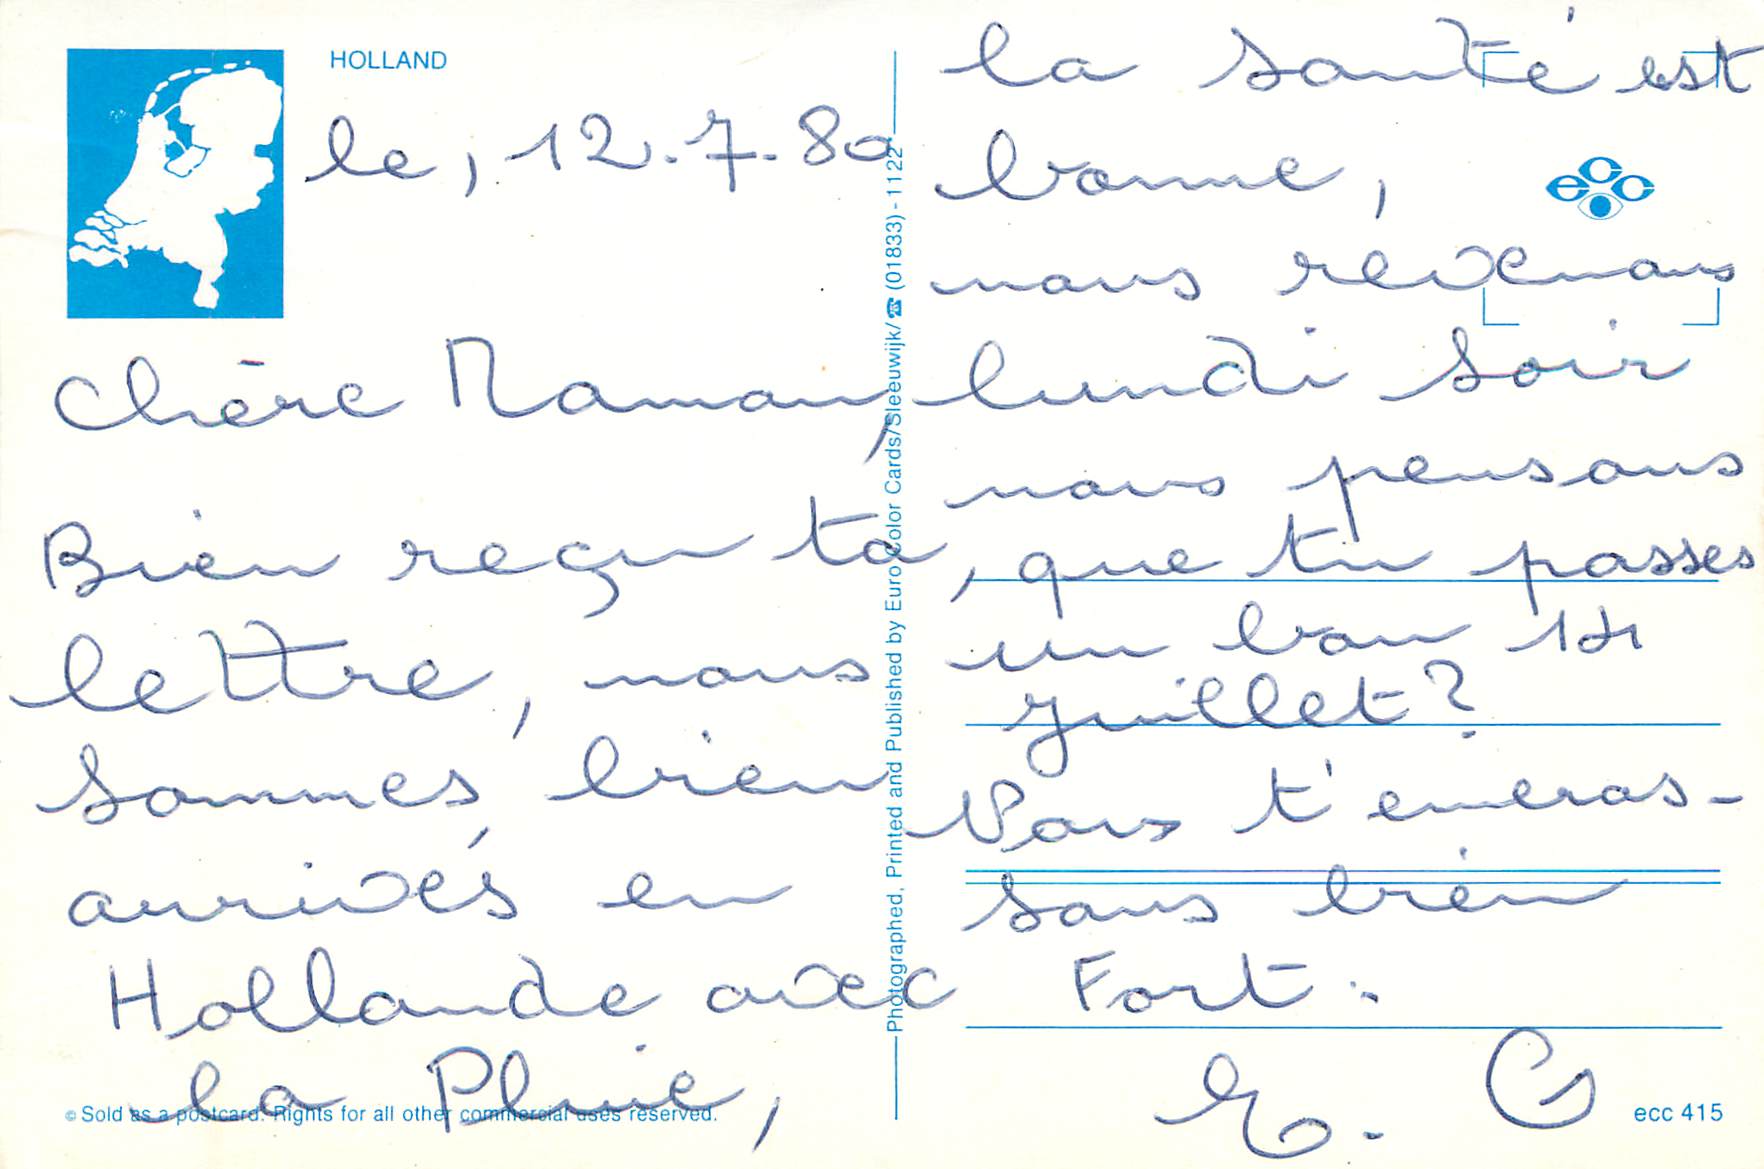 HOLLAND
le, 12.7.80
Chère Maman,
Bien reçu ta
lettre, nous
sommes bien
arrivés en
Hollande avec
la Pluie,
© Sold as a postcard. Rights for all other commercial uses reserved.
Photographed, Printed and Published by Euro Color Cards/Sleeuwijk/☎ (01833) - 1122
la santé est
bonne,
nous révenons
lundi soir
nous pensons
, que tu passes
un bon 14
juillet?
Nous t'embras-
sons bien
Fort.
ecc 415